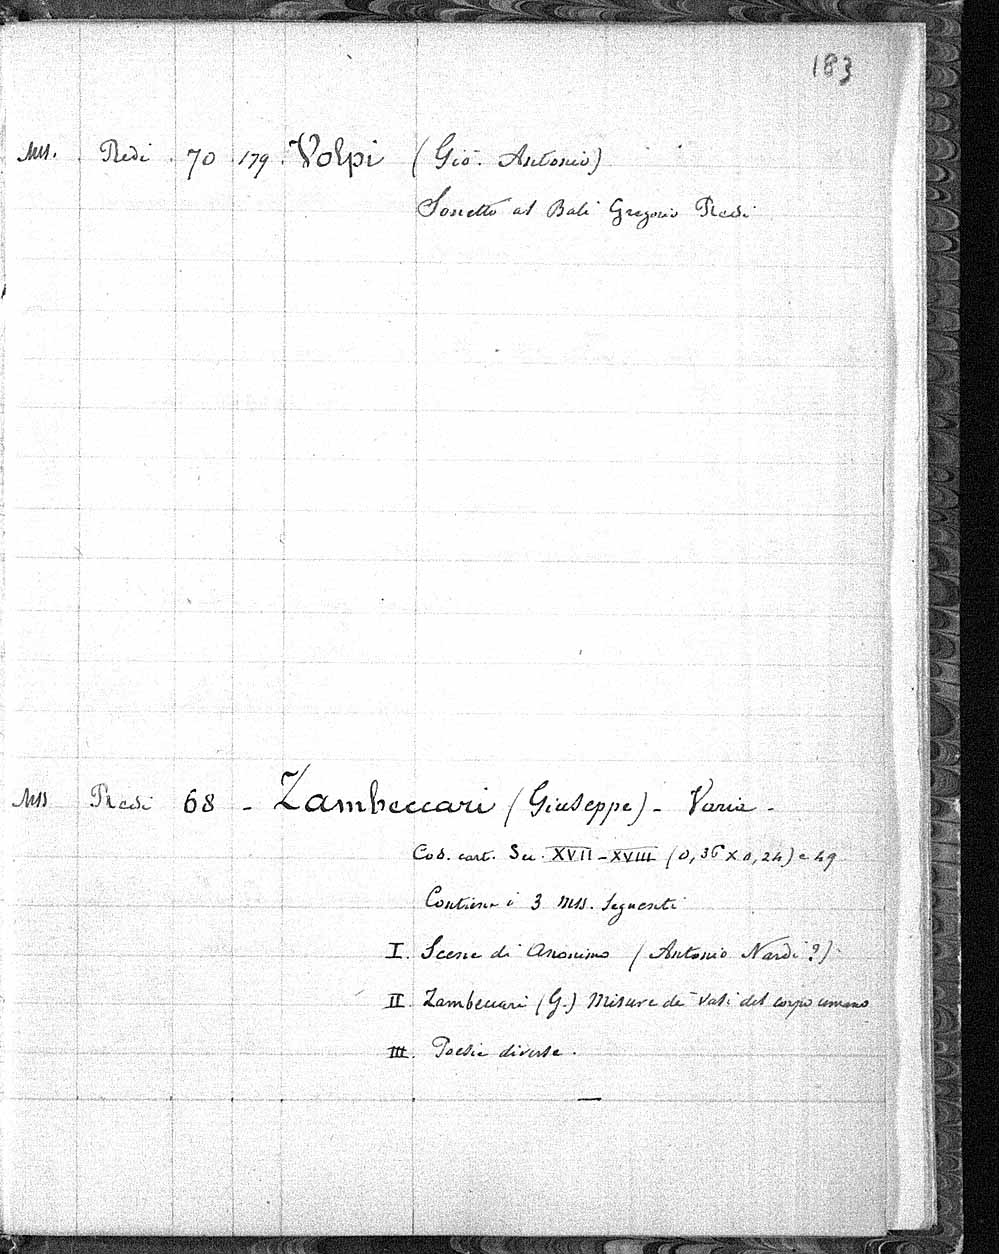 183
Mss. Redi 70 179 Volpi (Gio. Antonio)
Sonetto al Balì Gregorio Redi
Mss Redi 68 - Zambeccari (Giuseppe) - Varia -
Cod. cart. Sec. XVII-XVIII (0,36 x 0,24) c 49
Contiene i 3 mss. seguenti
I. Scene di Anonimo (Antonio Nardi?)
II. Zambeccari (G.) Misure de' vasi del corpo umano
III. Poesie diverse.